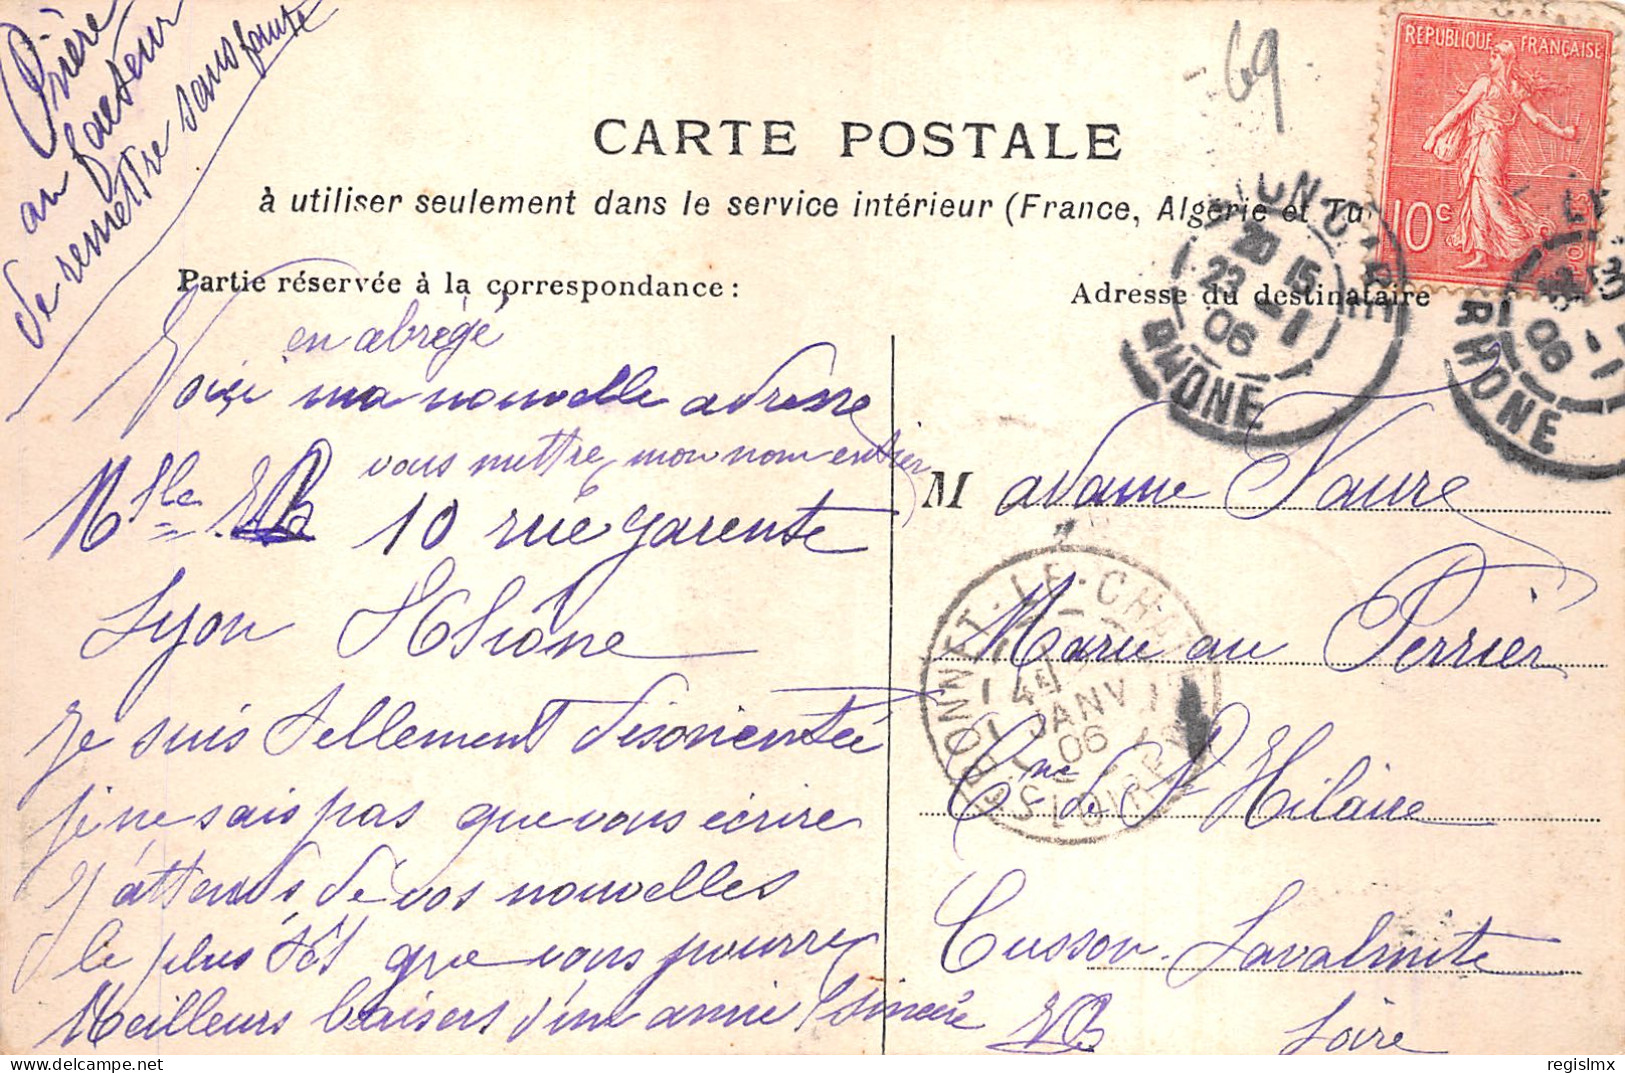 Prière
au facteur
de remettre sans faute
69
REPUBLIQUE FRANÇAISE
10c
CARTE POSTALE
à utiliser seulement dans le service intérieur (France, Algérie et Tu
Partie réservée à la correspondance :
Adresse du destinataire
LYON
RHONE
15
23 - 1
06
RHONE
06
en abrégé
Voici ma nouvelle adresse
vous mettre mon nom entier
Mlle 10 rue garente
Lyon Rhône
Je suis tellement désorientée
je ne sais pas que vous écrire
J'attends de vos nouvelles
le plus tôt que vous pourrez
Meilleurs baisers d'une amie sincère
Madame Faure
Marie au Perrier
Cne de St Hilaire
Cusson-Lavalmite
Loire
JANV
06
LOIRE
regislmx